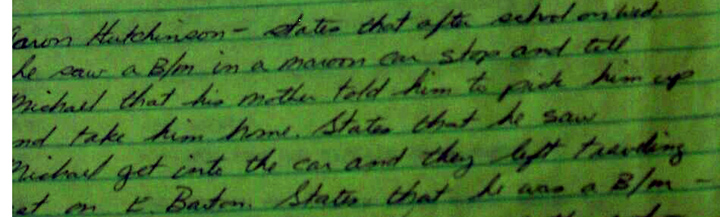 aron Hutchinson - states that after school on wed.
he saw a B/m in a maroon car stop and tell
Michael that his mother told him to pick him up
nd take him home. States that he saw
Michael get into the car and they left traveling
st on E. Barton. States that he was a B/m -